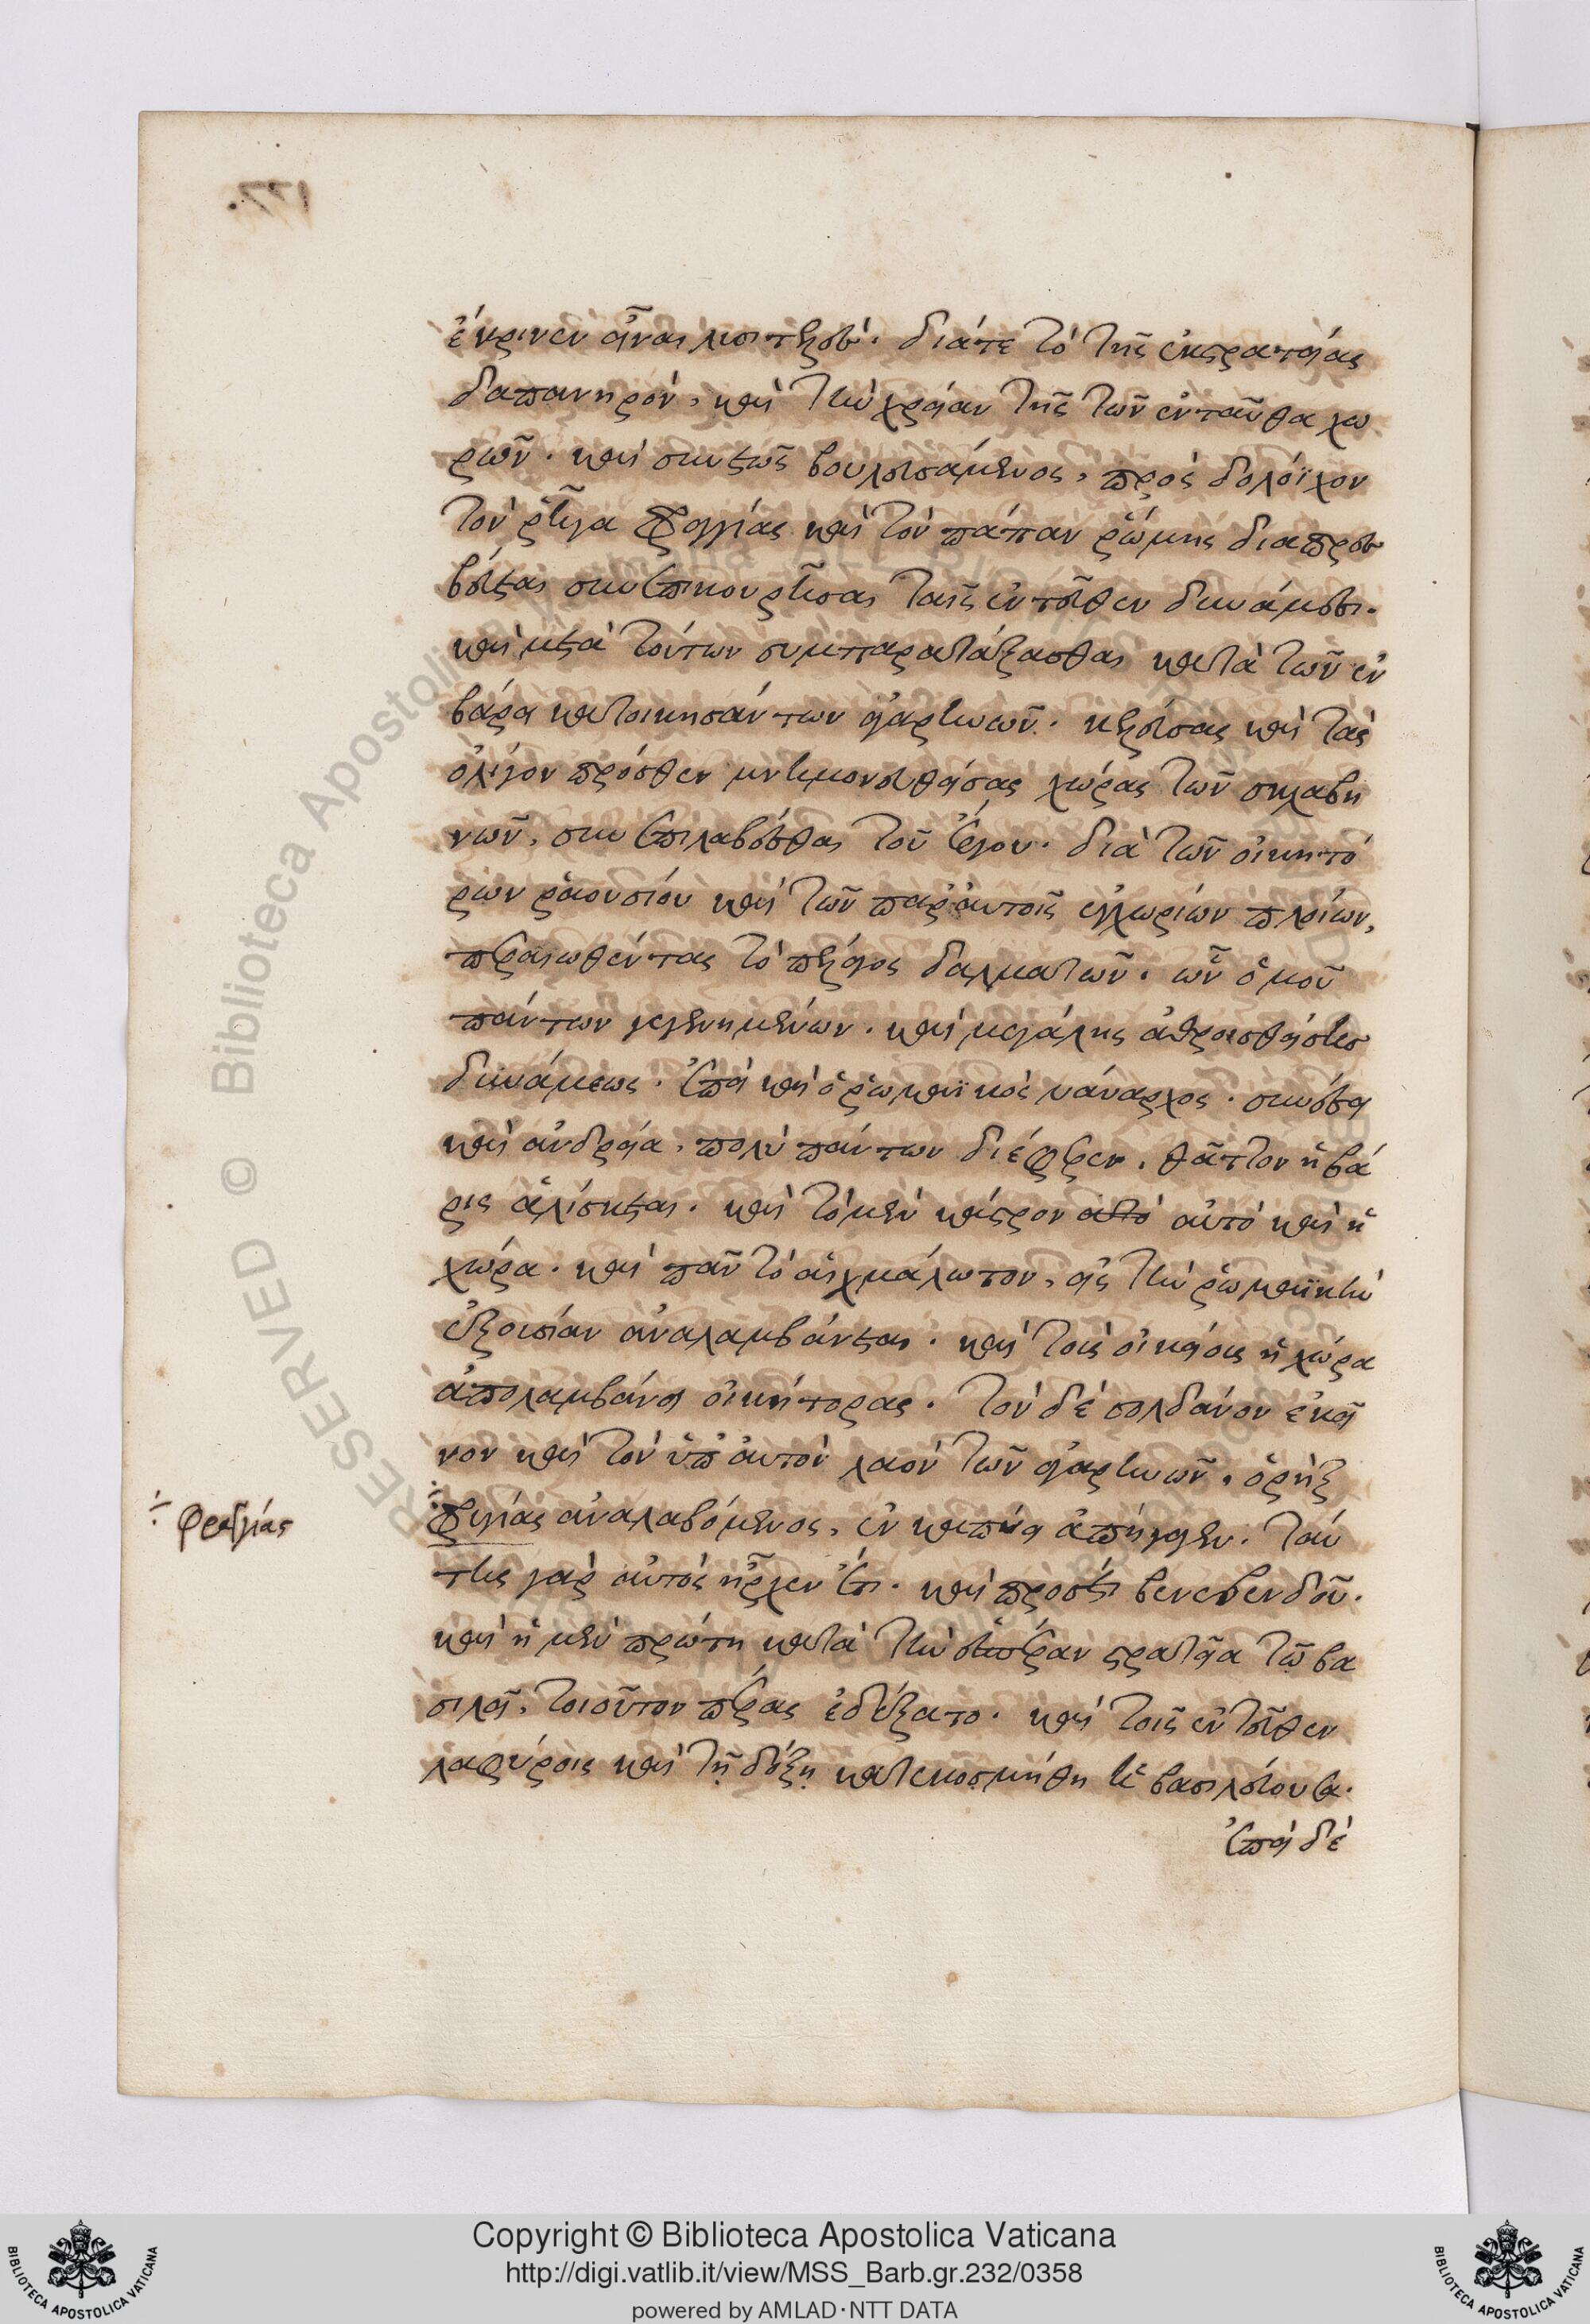 ἔκρινεν εἶναι λυσιτελές. διά τε τὸ τῆς ἐκστρατείας
δαπανηρόν, καὶ τὴν χρείαν τῆς τῶν ἐνταῦθα χω
ρῶν. καὶ συνετῶς βουλευσάμενος, πρὸς δολόϊχον
τὸν ῥῆγα φραγγίας καὶ τὸν πάπαν ῥώμης διαπρεσ
βεύεται συνεπικουρῆσαι ταῖς ἐντεῦθεν δυνάμεσι.
καὶ μετὰ τούτων συμπαρατάξασθαι κατὰ τῶν ἐν
βάρει κατοικησάντων ἀγαρηνῶν. κελεύσας καὶ τὰς
ὀλίγον πρόσθεν μνημονευθείσας χώρας τῶν σκλαβη
νῶν, συνεπιλαβέσθαι τοῦ ἔργου. διὰ τῶν οἰκητό
ρων ῥαουσίου καὶ τῶν παρ' αὐτοῖς ἐγχωρίων πλοίων,
περαιωθέντας τὸ πέλαγος δαλματῶν. ὧν ὁμοῦ
πάντων γεγενημένων. καὶ μεγάλης ἀθροισθείσης
δυνάμεως. ἐπεὶ καὶ ὁ ῥωμαϊκὸς νάυαρχος. συνέσει
καὶ ἀνδρεία, πολὺ πάντων διέφερεν, θᾶττον ἡ βά
ρις ἁλίσκεται. καὶ τὸ μὲν κάστρον αὐτὸ αὐτό καὶ ἡ
χώρα. καὶ πᾶν τὸ αἰχμάλωτον, εἰς τὴν ῥωμαϊκὴν
ἐξουσίαν ἀναλαμβάνεται. καὶ τοὺς οἰκείους ἡ χώρα
ἀπολαμβάνει οἰκήτορας. τὸν δὲ σολδάνον ἐκεῖ
νον καὶ τὸν ὑπ' αὐτὸν λαὸν τῶν ἀγαρηνῶν, ὁ ῥὴξ
φραγίας ἀναλαβόμενος, ἐν καπύῃ ἀπήγαγεν. ταύ
της γὰρ αὐτὸς ἦρχεν ἔτι. καὶ προσέτι βενεβενδοῦ.
καὶ ἡ μὲν πρώτη κατὰ τὴν ἑσπέραν στρατεία τῶ βα
σιλεῖ, τοιοῦτον πέρας ἐδέξατο. καὶ τοῖς ἐντεῦθεν
λαφύροις καὶ τῇ δόξῃ κατεκοσμήθη ἡ βασιλεύουσα.
ἐπεὶ δὲ
φραγγίας